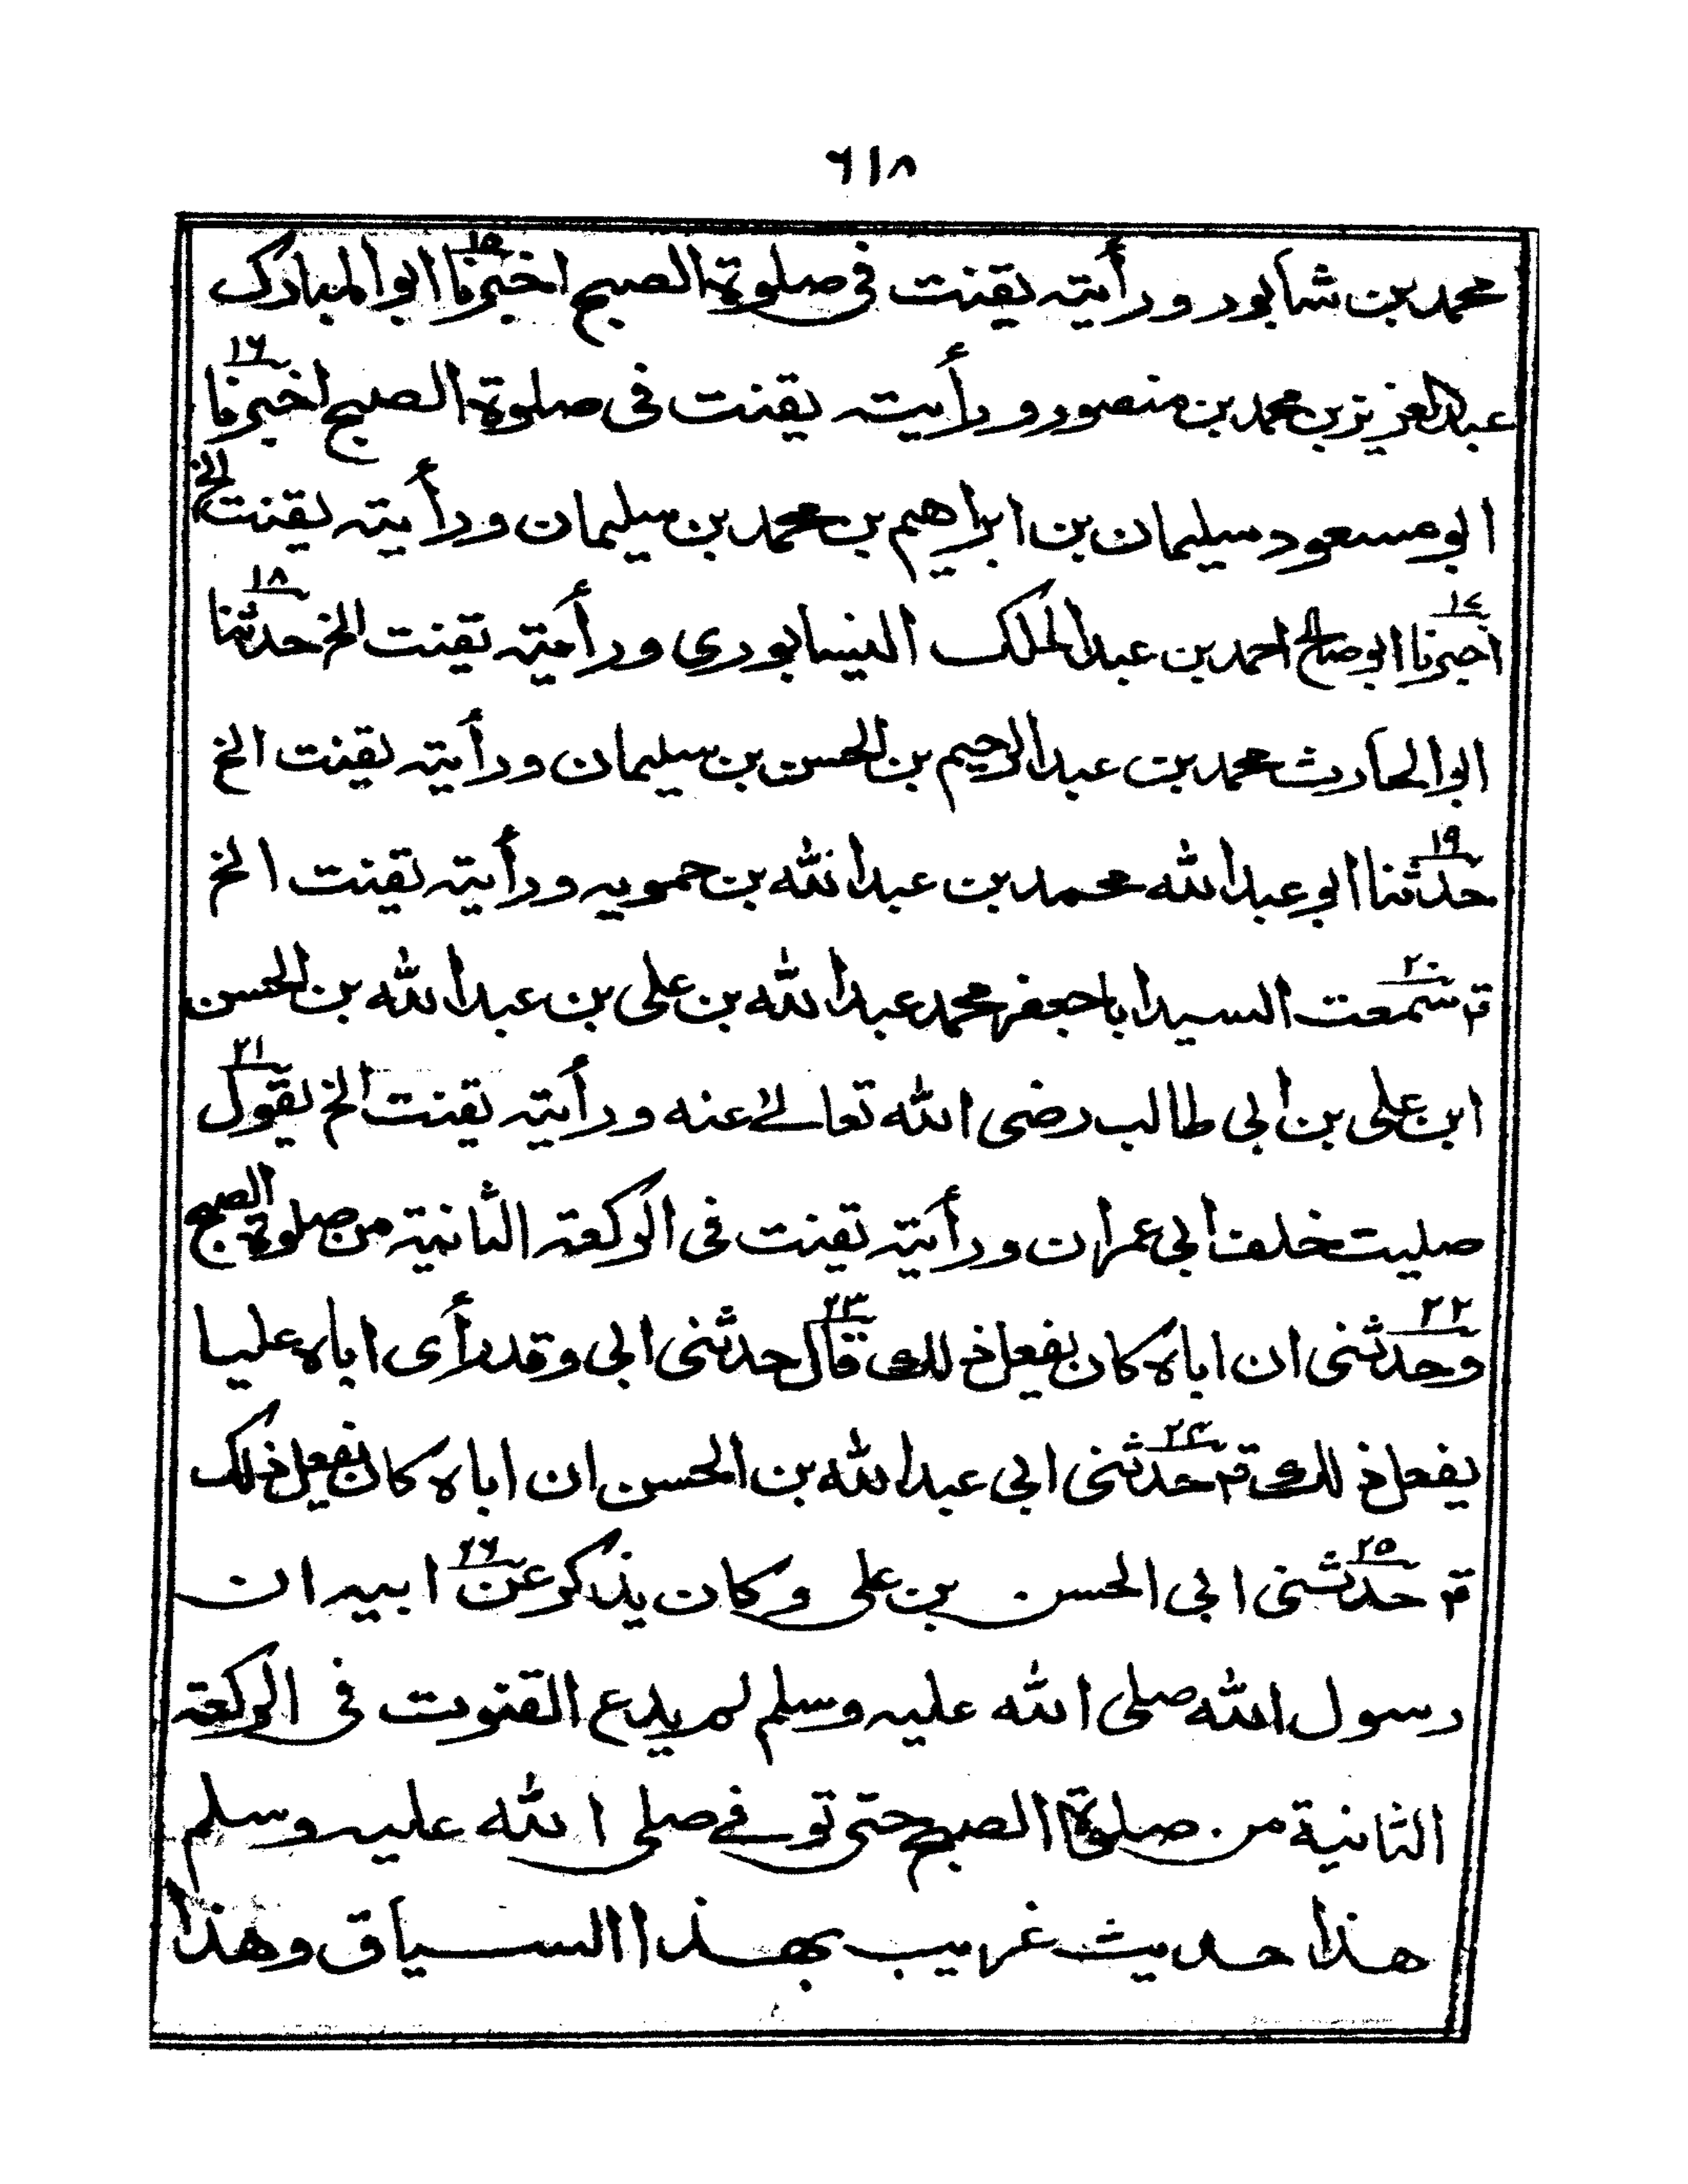 ٦١٨
محمد بن شابور ورأيته يقنت فى صلوة الصبح اخبرنا١٥ ابوالمبارک
عبدالعزيز بن محمد بن منصور ورأيته يقنت فى صلوة الصبح اخبرنا١٦
ابو مسعود سليمان بن ابراهيم بن محمد بن سليمان ورأيته يقنت الخ
اخبرنا١٤ ابو صالح احمد بن عبدالملک النيسابورى ورأيته يقنت الخ حدثنا١٨
ابوالحارث محمد بن عبدالرحيم بن الحسن بن سليمان ورأيته يقنت الخ
حدثنا١٩ ابو عبدالله محمد بن عبدالله بن حمويه ورأيته يقنت الخ
قم سمعت٢٠ السيد اباجعفر محمد عبدالله بن على بن عبدالله بن الحسن
ابن على بن ابى طالب رضى الله تعالے عنه ورأيته يقنت الخ يقول٢١
صليت خلف ابى عمران ورأيته يقنت فى الركعة الثانية من صلوة الصبح
وحدثنى٢٢ ان اباه كان يفعل ذلك قال٢٣ حدثنى ابى وقد رأى اباه عليا
يفعل ذلك قم حدثنى٢٤ ابى عبدالله بن الحسن ان اباه كان يفعل ذلک
قم حدثنى٢٥ ابى الحسن بن على وكان يذكر عن٢٦ ابيه ان
رسول الله صلى الله عليه وسلم لم يدع القنوت فى الركعة
الثانية من صلوة الصبح حتى توفے صلى الله عليه وسلم
هذا حديث غريب بهذا السياق وهذا